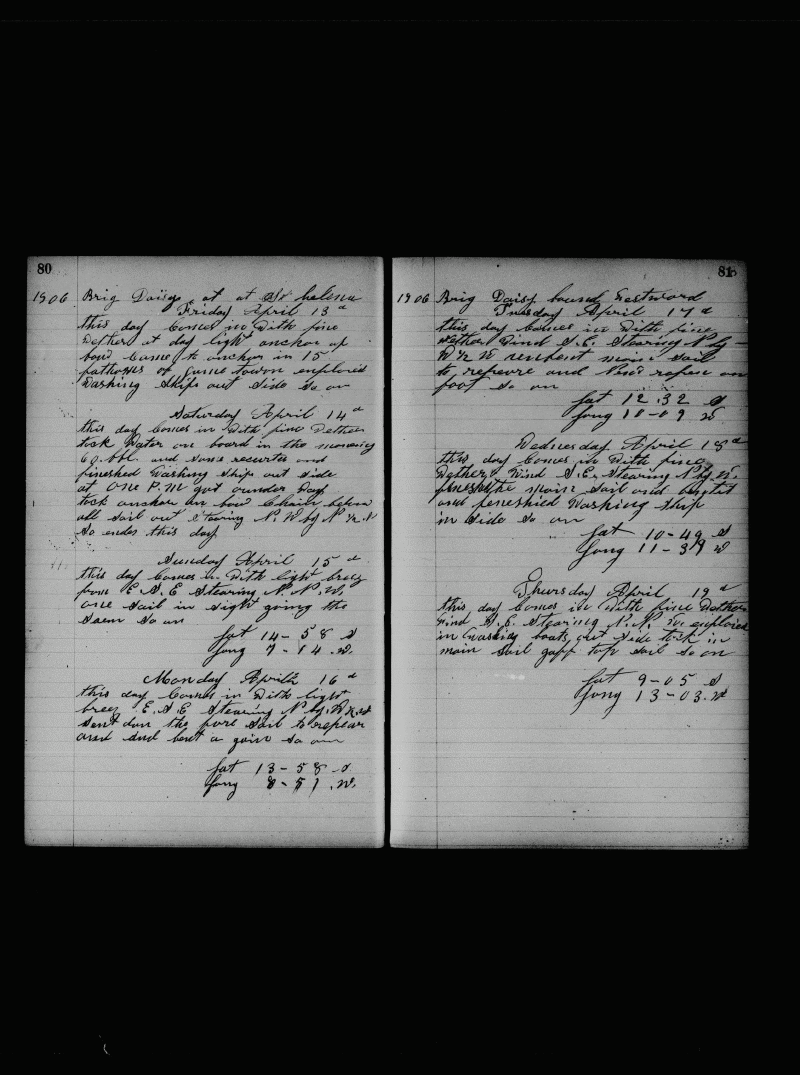 80
1906 Brig Daisy at at St helena
Friday April 13 d
this day Comes in With fine
Wether at day light anchor up
bow Came to anchor in 15
fathoms of James town employed
Washing Ships out Side So on
Saturday April 14 d
this day Comes in With fine Wether
tock Water on board in the morning
60. bbl. and some recurits and
fineshed Washing Ship out side
at one P.M got ounder Way
tock anchor on bow Chain below
all sail out stearing N. W by N ½ N
So endes this day
Sunday April 15 d
this day Comes in With light breez
from E. S. E Stearing N. N. W.
one Sail in sight going the
Saem So on
Lat 14 - 58 S
Long 7 - 14 . W.
Monday April 16 d
this day Comes in With light
breez E. S. E Stearing N by. W ½ W
Sent don the fore Sail to repear
and and bent a gain So on
Lat 13 - 58 S
Long 8 - 51 . W.
81
1906 Brig Daisy bound Westward
Tuesday April 17 d
this day Comes in With fine
Wether Wind S. E. Stearing N by
W ½ W unbent main Sail
to repeare and on
foot So on
Lat 12 . 32 S
Long 10 - 09 W
Wednesday April 18 d
this day Comes in With fine
Wether Wind S. E. Stearing N by. W.
the main Sail and
and feneshied Washing Ship
in Side So on
Lat 10 - 49 S
Long 11 - 39 W
Thursday April 19 d
this day Comes in With fine Wether
Wind S. E. Stearing N. N. W. employed
in Washing boats out Side tock in
main Sail gaff top Sail So on
Lat 9 - 05 S
Long 13 - 03 . W